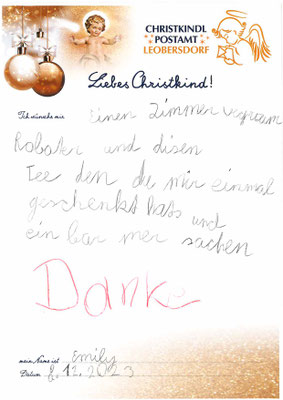 CHRISTKINDL
POSTAMT
LEOBERSDORF
Liebes Christkind!
Ich wünsche mir einen Zimmer vegraum
Roboter und disen
Tee den du mir einmal
geschenkt hats und
ein bar mer sachen
Danke
mein Name ist Emily
Datum 8.12.2023